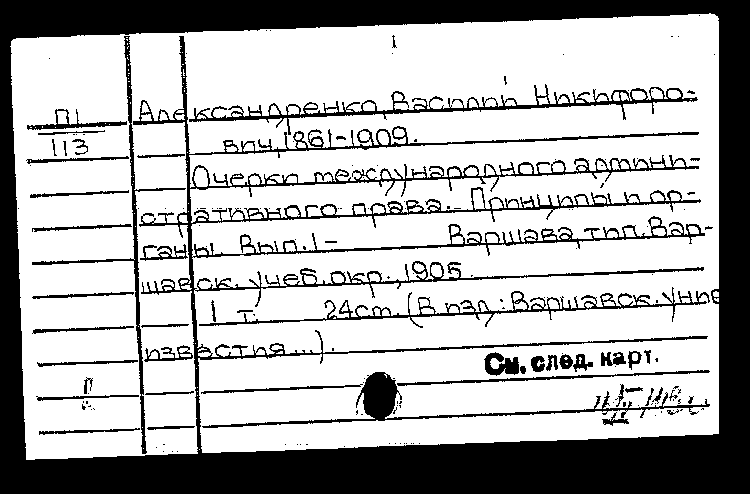 1
П1 Александренко, Василий Никифоро-
113 вич, 1861-1909.
Очерки международного админи-
стративного права.- Принципы и ор-
ганы. Вып.1- Варшава, тип. Вар-
шавск. учеб. окр., 1905.
1 т. 24ст. (В изд: Варшавск. уние
известия...).
См. след. карт.
П